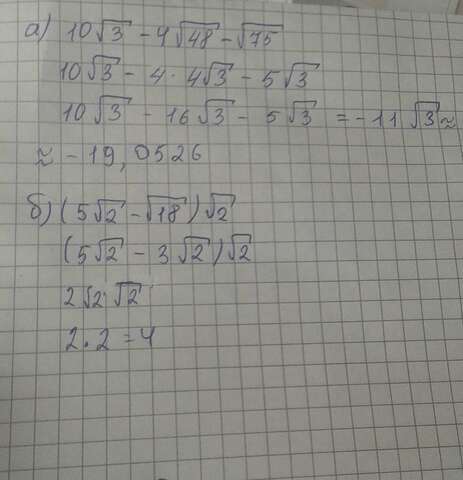 а) 10√3 - 4√48 - √75
10√3 - 4 · 4√3 - 5√3
10√3 - 16√3 - 5√3 = -11√3 ≈
≈ -19,0526
б) (5√2 - √18)√2
(5√2 - 3√2)√2
2√2 √2
2 · 2 = 4